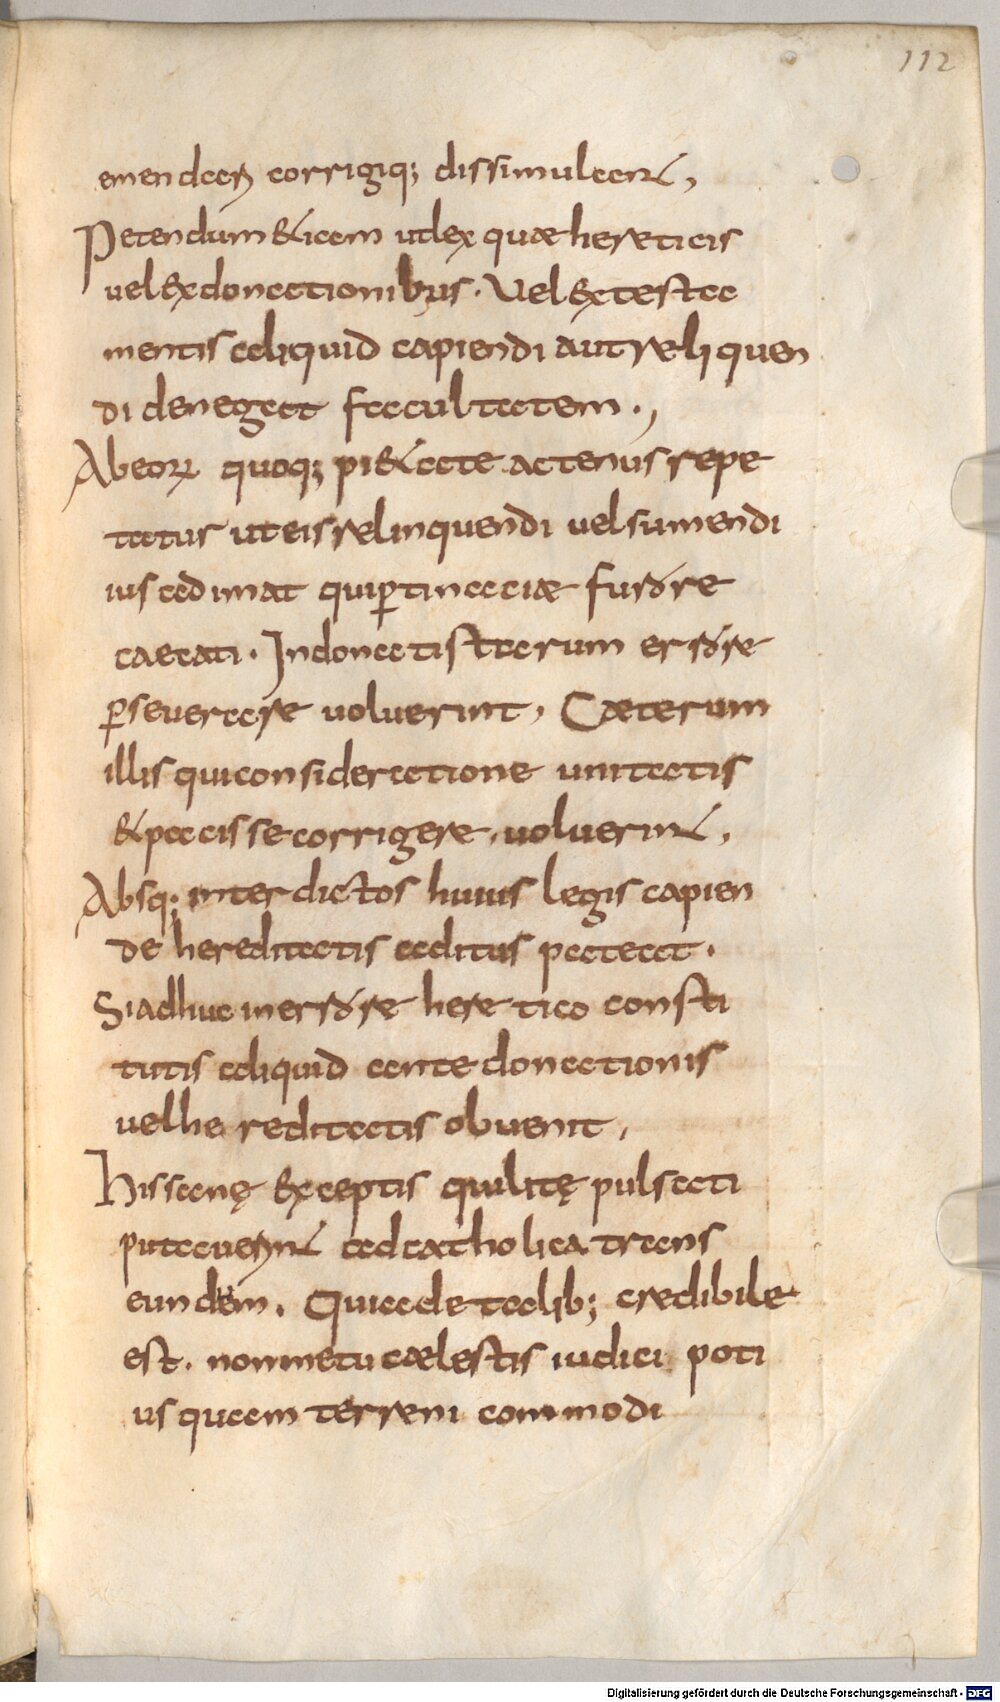 112
emendari corrigiq; dissimulant,
Petendum &iam utlex quae hereticis
uel exdonationibus. Vel ex testa
mentis aliquid capiendi aut relinquen
di denegat facultatem.,
Ab eorum quoq; pi&ate actenus repe
tatur ut eis relinquendi uel sumendi
ius adimat qui ptinaciae furore
caecati. In donatistarum errore
pseuerare uoluerint, Caeterum
illis qui consideratione unitatis
& pacis se corrigere, uoluerint,
Absq; inter dictos huius legis capien
de hereditatis aditus pateat.
Si adhuc in errore heretico consti
tutis aliquid ante donationis
uel hereditatis obuenit,
His sanę exceptis qui litę pulsati
putauerint ad catholica trans
eundem. Qui ade talib; credibile
est. non metu caelestis iudici poti
us quam terreni commodi
Digitalisierung gefördert durch die Deutsche Forschungsgemeinschaft - DFG